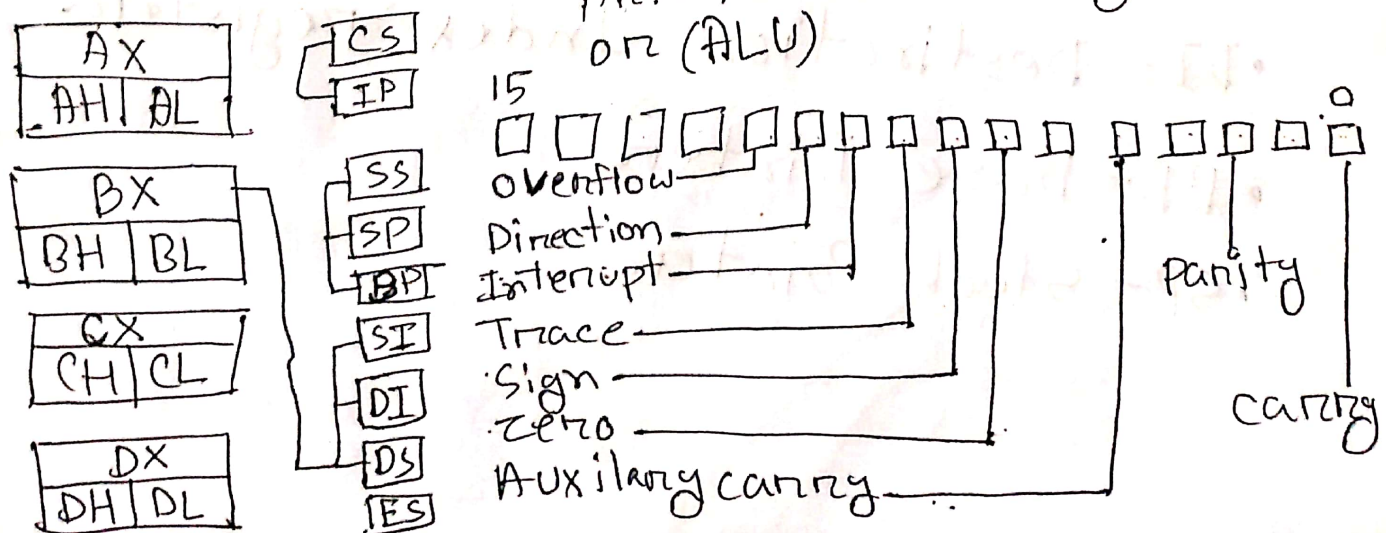 on (ALU)
AX
AH AL
BX
BH BL
CX
CH CL
DX
DH DL
CS
IP
SS
SP
BP
SI
DI
DS
ES
15
0
Overflow
Direction
Interrupt
Trace
Sign
Zero
Auxilary carry
parity
carry